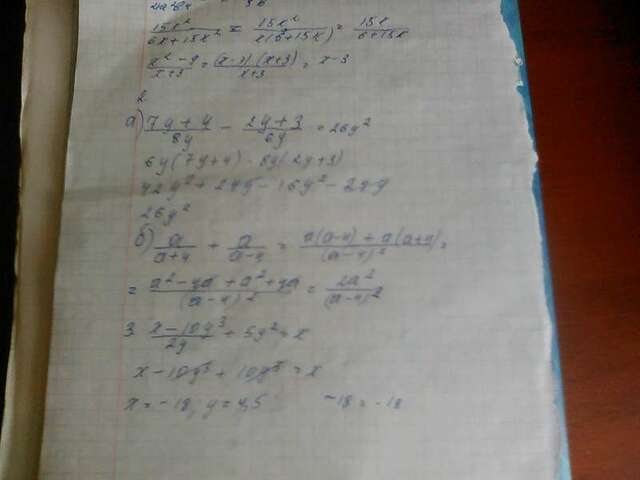 15x² / 6x+15x² = 15x² / x(6+15x) = 15x / 6+15x
x²-9 / x+3 = (x-3)(x+3) / x+3 = x-3
2.
а) 7y+4 / 8y - 2y+3 / 6y = 26y²
6y(7y+4) - 8y(2y+3)
42y² + 24y - 16y² - 24y
26y²
б) a / a+4 + a / a-4 = a(a-4) + a(a+4) / (a-4)² =
= a²-4a+a²+4a / (a-4)² = 2a² / (a-4)²
3. x-10y³ / 2y + 5y² = x
x-10y³ + 10y³ = x
x = -18, y = 4,5 -18 = -18